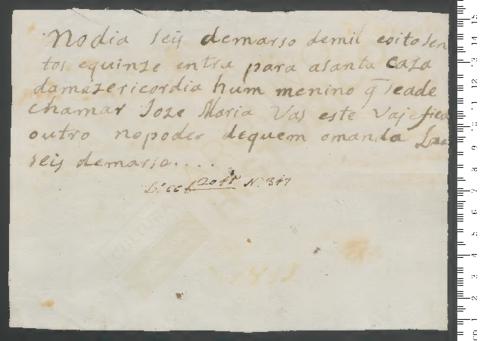 Nodia seis demarso demil eoitosen
tos equinze entra para asanta caza
damezericordia hum menino q̃ seade
chamar Joze Maria Vas este vaj efica
outro nopoder dequem omanda
seis demarso....
N. 347